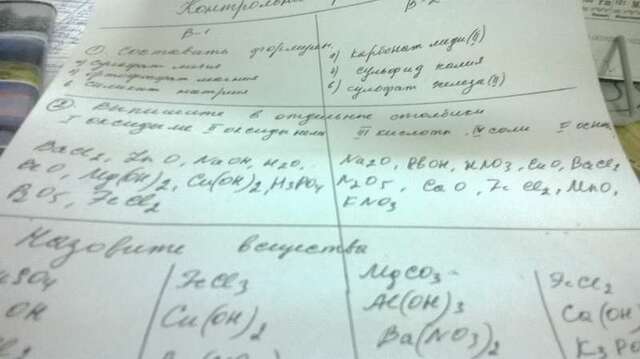 Контрольная
В-1
В-2
① Составить формулы
а) сульфат лития
б) ортофосфат магния
в) силикат натрия
а) карбонат меди (II)
б) сульфид калия
в) сульфат железа (II)
② Выпишите в отдельные столбики
I оксиды ме II оксиды неме III кислоты IV соли V осн.
BaCl2, ZnO, NaOH, H2O,
Mg(OH)2, Cu(OH)2, H3PO4
P2O5, FeCl2
Na2O, HNO3, CuO, BaCl2
N2O5, CaO, FeCl2, MnO,
KNO3
Назовите вещества
SO4
OH
FeCl3
Cu(OH)2
MgCO3
Al(OH)3
Ba(NO3)2
FeCl2
Ca(OH)